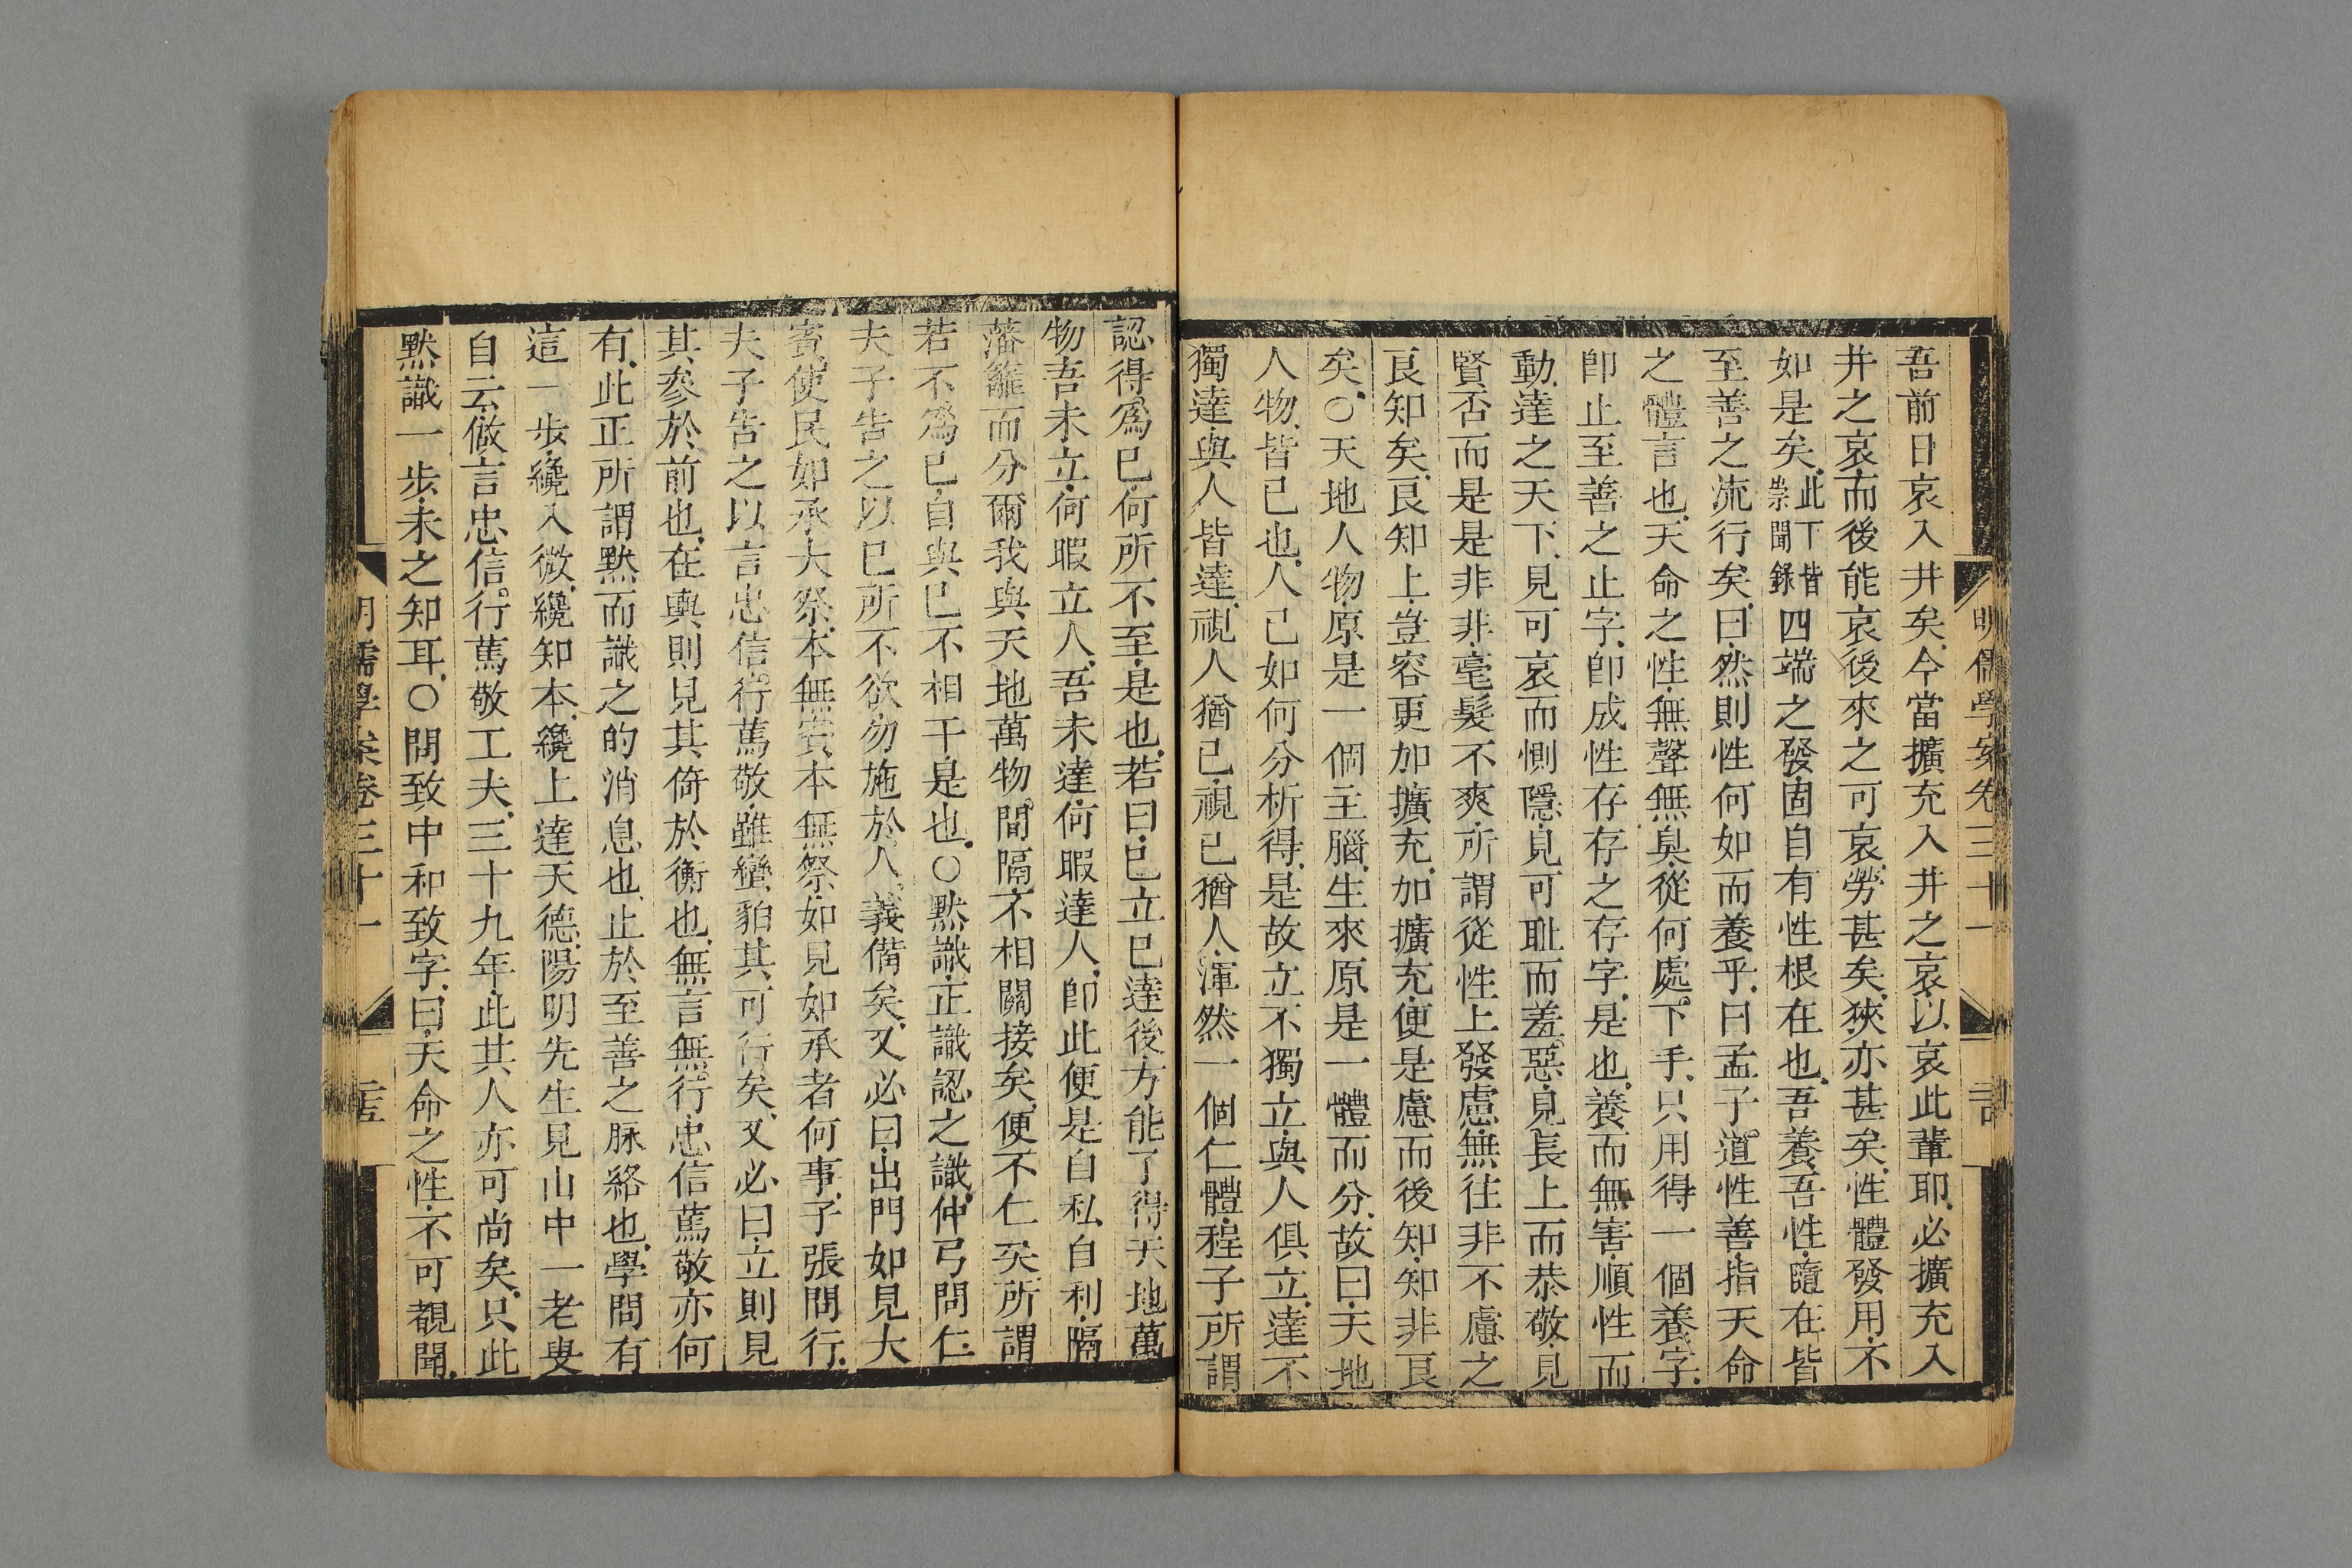 明儒學案卷三十一
吾前日哀入井矣今當擴充入井之哀以哀此輩耶必擴充入
井之哀而後能哀後來之可哀勞甚矣狹亦甚矣性體發用不
如是矣此下皆崇聞錄四端之發固自有性根在也吾養吾性隨在皆
至善之流行矣曰然則性何如而養乎曰孟子道性善指天命
之體言也天命之性無聲無臭從何處下手只用得一個養字
卽止至善之止字卽成性存存之存字是也養而無害順性而
動達之天下見可哀而惻隱見可耻而羞惡見長上而恭敬見
賢否而是是非非毫髮不爽所謂從性上發慮無往非不慮之
良知矣良知上豈容更加擴充加擴充便是慮而後知知非良
矣○天地人物原是一個主腦生來原是一體而分故曰天地
人物皆己也人己如何分析得是故立不獨立與人俱立達不
獨達與人皆達視人猶己視己猶人渾然一個仁體程子所謂
認得爲己何所不至是也若曰己立己達後方能了得天地萬
物吾未立何暇立人吾未達何暇達人卽此便是自私自利隔
藩籬而分爾我與天地萬物間隔不相關接矣便不仁矣所謂
若不爲己自與己不相干是也○默識正識認之識仲弓問仁
夫子告之以己所不欲勿施於人義備矣又必曰出門如見大
賓使民如承大祭本無賓本無祭如見如承者何事子張問行
夫子告之以言忠信行篤敬雖蠻貊其可行矣又必曰立則見
其參於前也在輿則見其倚於衡也無言無行忠信篤敬亦何
有此正所謂默而識之的消息也止於至善之脉絡也學問有
這一步纔入微纔知本纔上達天德陽明先生見山中一老叟
自云做言忠信行篤敬工夫三十九年此其人亦可尚矣只此
默識一步未之知耳○問致中和致字曰天命之性不可覩聞
明儒學案卷三十一